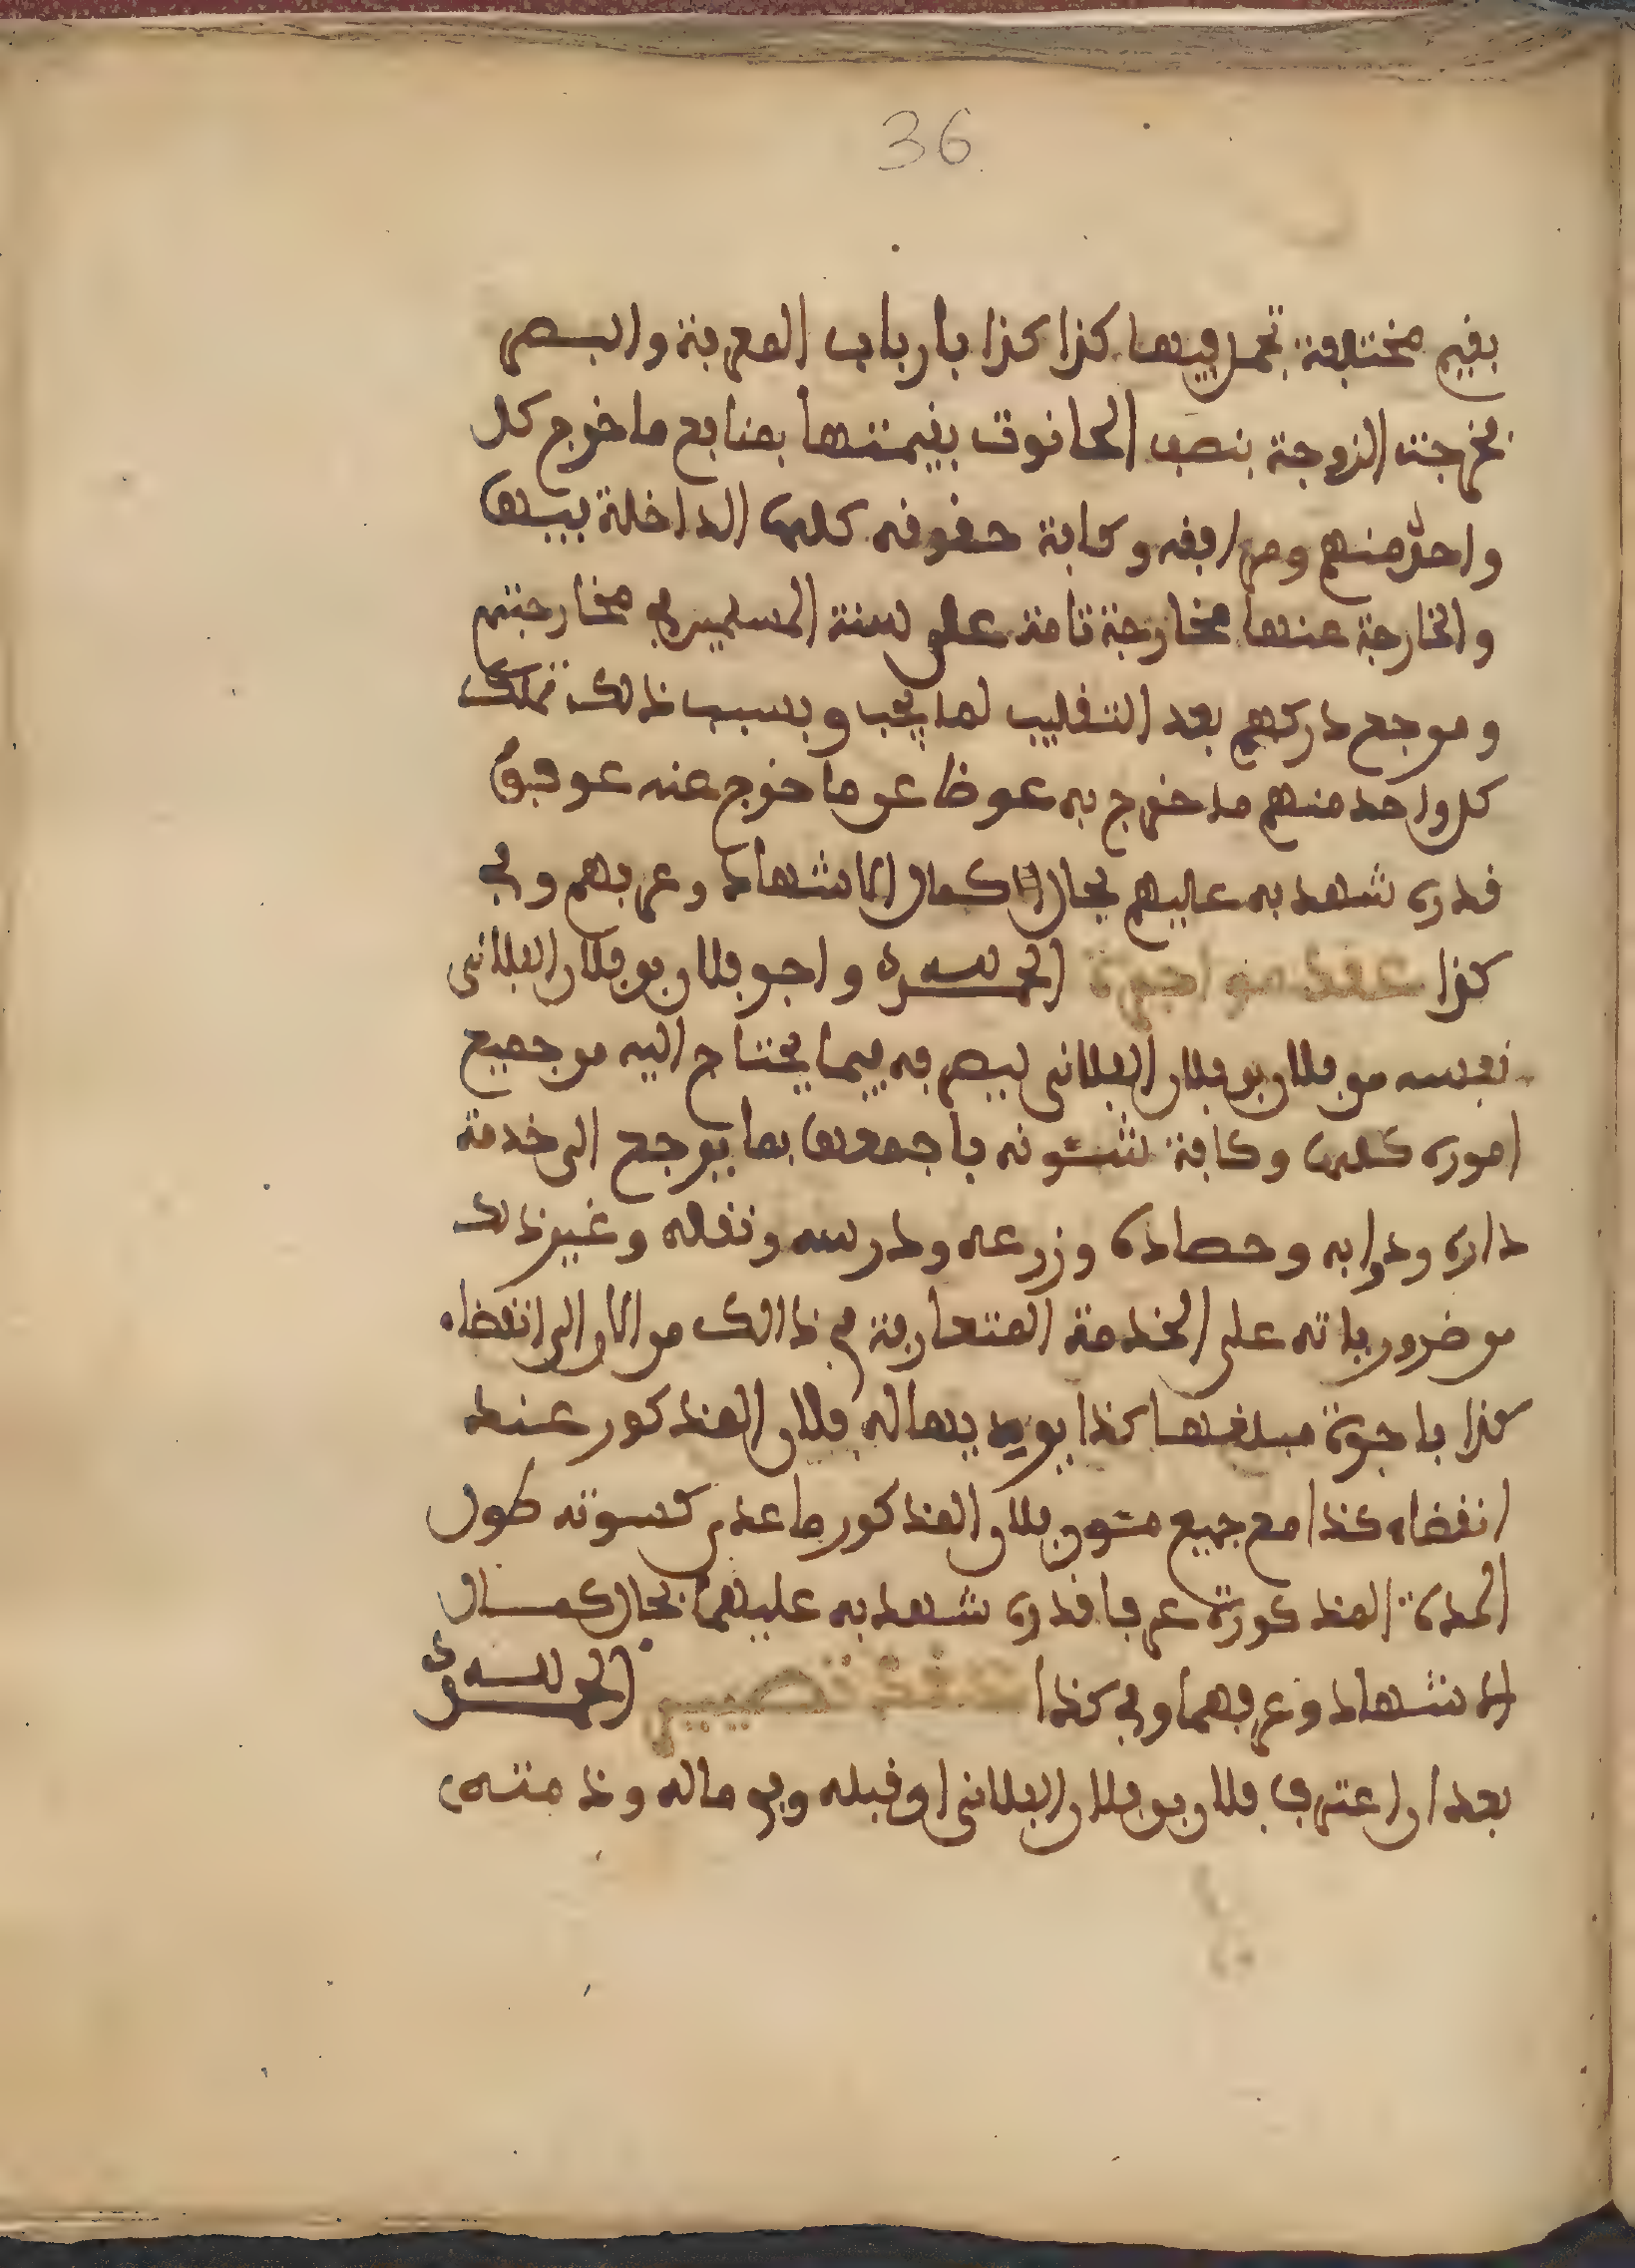 36
بقيم مختلفة تحمل قيمها كذا كذا بارباب المعرفة والبصر
فخرجت الزوجة بنصف الحانوت بقيمتها بمنابع ما خرج كل
واحد منهم ومرافقه وكافة حقوقه كلها الداخلة بيسها
والخارجة عنها مخارجة تامة على سنة المسلمين في مخارجتهم
ومرجع دركهم بعد التقليب لما يجب وبسبب ذلك تملك
كل واحد منهم ما خرج به عوضا عن ما خرج عنه عرفوا
قدره شهد به عليهم بحال اكمال الاشهاد وعرفهم وفي
كذا عقد من اجرة الحمد لله واجر فلان بن فلان الفلاني
نفسه من فلان بن فلان الفلاني ليصرفه فيما يحتاج اليه من جميع
اموره كلها وكافة شئونه باجمعها بما يرجع الى خدمة
داره ودوابه وحصاده وزرعه ودرسه ونقله وغير ذلك
من ضرورياته على الخدمة المتعارفة في ذالك من الان الى انقضاء
كذا باجرة مبلغها كذا يوديها له فلان المذكور عند
انقضاء كذا مع جميع مئون فلان المذكور ما عدى كسوته طول
المدة المذكورة عرفا قدره شهد به عليهما بحال كمال
الاشهاد وعرفهما وفي كذا عقد تصيير الحمد لله
بعد ان اعترف فلان بن فلان الفلاني ان قبله وفي ماله وذمته